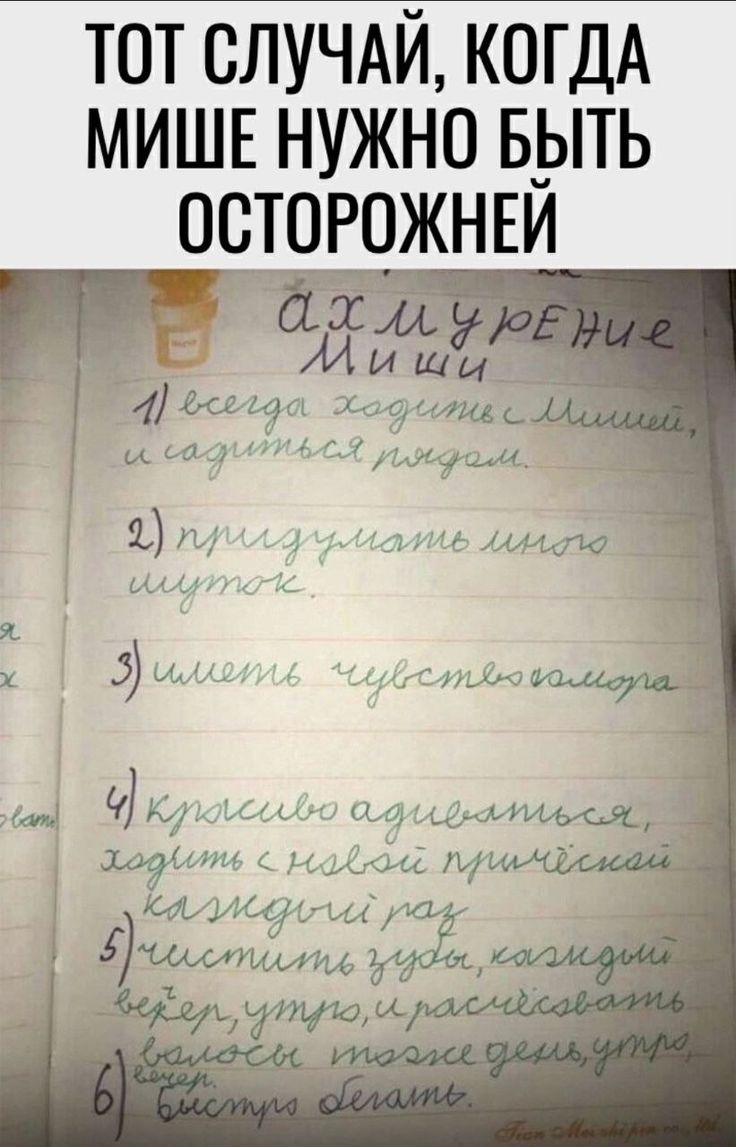 ТОТ СЛУЧАЙ, КОГДА
МИШЕ НУЖНО БЫТЬ
ОСТОРОЖНЕЙ
ахмурение
Миши
1) всегда ходить с Мишей,
и садиться рядом.
2) придумать много
шуток.
3) иметь чувство юмора
4) красиво адиваться,
ходить с новой причёской
каждый раз
5) чистить зубы, каждый
вечер, утро, и расчёсовать
волосы тоже день, утро,
вечер.
6) Быстро бегать.
я
х
овать